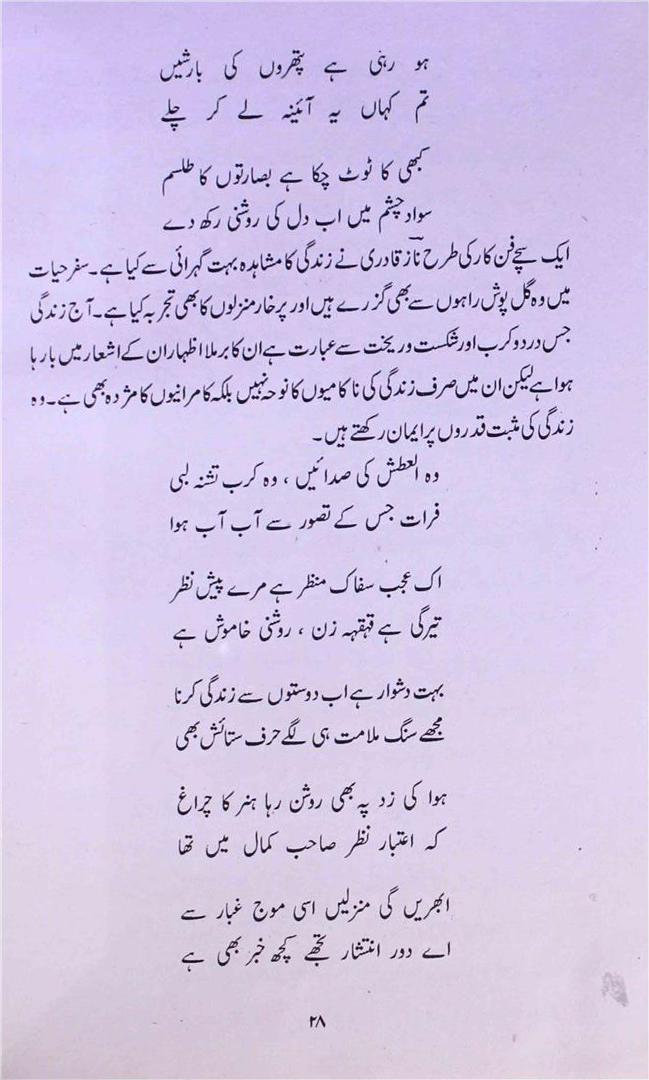 ہو رہی ہے پتھروں کی بارشیں
تم کہاں یہ آئینہ لے کر چلے
کبھی کا ٹوٹ چکا ہے بصارتوں کا طلسم
سواد چشم میں اب دل کی روشنی رکھ دے
ایک سچے فن کار کی طرح نازؔ قادری نے زندگی کا مشاہدہ بہت گہرائی سے کیا ہے۔ سفر حیات
میں وہ گل پوش راہوں سے بھی گزرے ہیں اور پر خار منزلوں کا بھی تجربہ کیا ہے۔ آج زندگی
جس درد و کرب اور شکست و ریخت سے عبارت ہے ان کا برملا اظہار ان کے اشعار میں بارہا
ہوا ہے لیکن ان میں صرف زندگی کی ناکامیوں کا نوحہ نہیں بلکہ کامرانیوں کا مژدہ بھی ہے۔ وہ
زندگی کی مثبت قدروں پر ایمان رکھتے ہیں۔
وہ العطش کی صدائیں ، وہ کرب تشنہ لبی
فرات جس کے تصور سے آب آب ہوا
اک عجب سفاک منظر ہے مرے پیش نظر
تیرگی ہے قہقہہ زن ، روشنی خاموش ہے
بہت دشوار ہے اب دوستوں سے زندگی کرنا
مجھے سنگ ملامت ہی لگے حرف ستائش بھی
ہوا کی زد پہ بھی روشن رہا ہنر کا چراغ
کہ اعتبار نظر صاحب کمال میں تھا
ابھریں گی منزلیں اسی موج غبار سے
اے دور انتشار تجھے کچھ خبر بھی ہے
۲۸